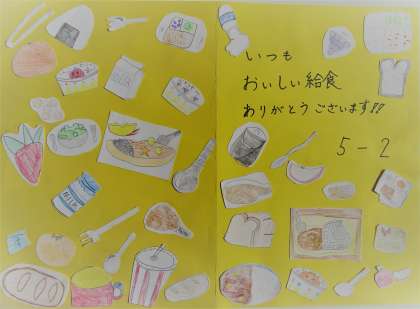 いつも
おいしい給食
ありがとうございます!!
5-2
MILK